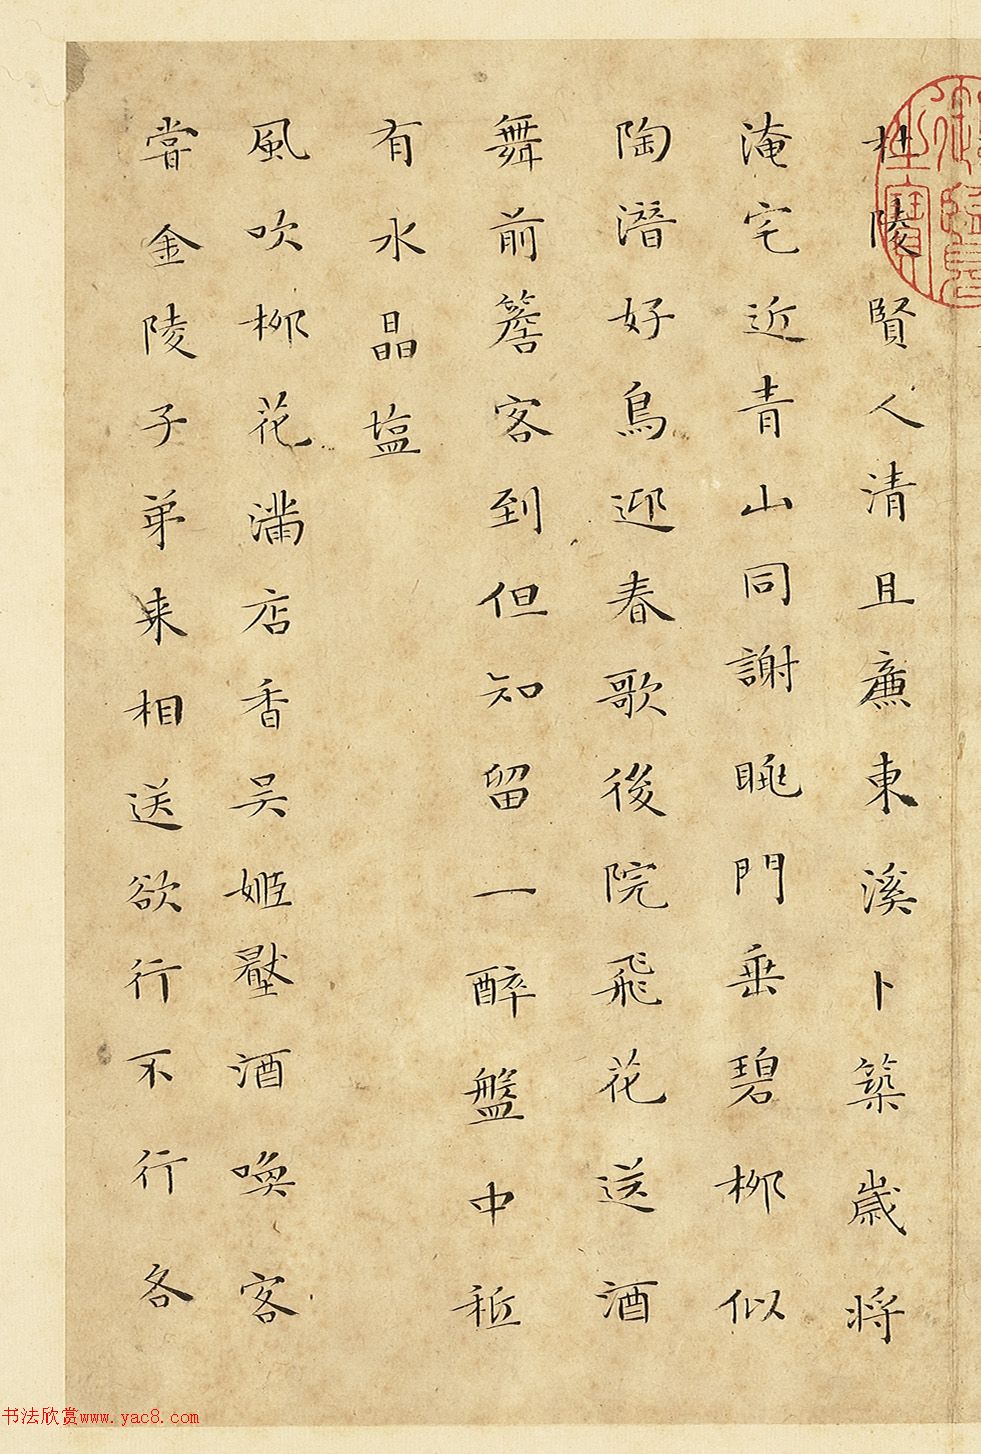 杜陵賢人清且廉東溪卜築歲將
淹宅近青山同謝眺門垂碧柳似
陶潛好鳥迎春歌後院飛花送酒
舞前簷客到但知留一醉盤中秪
有水晶塩
風吹柳花滿店香吴姬壓酒喚客
嘗金陵子弟来相送欲行不行各
书法欣赏www.yac8.com